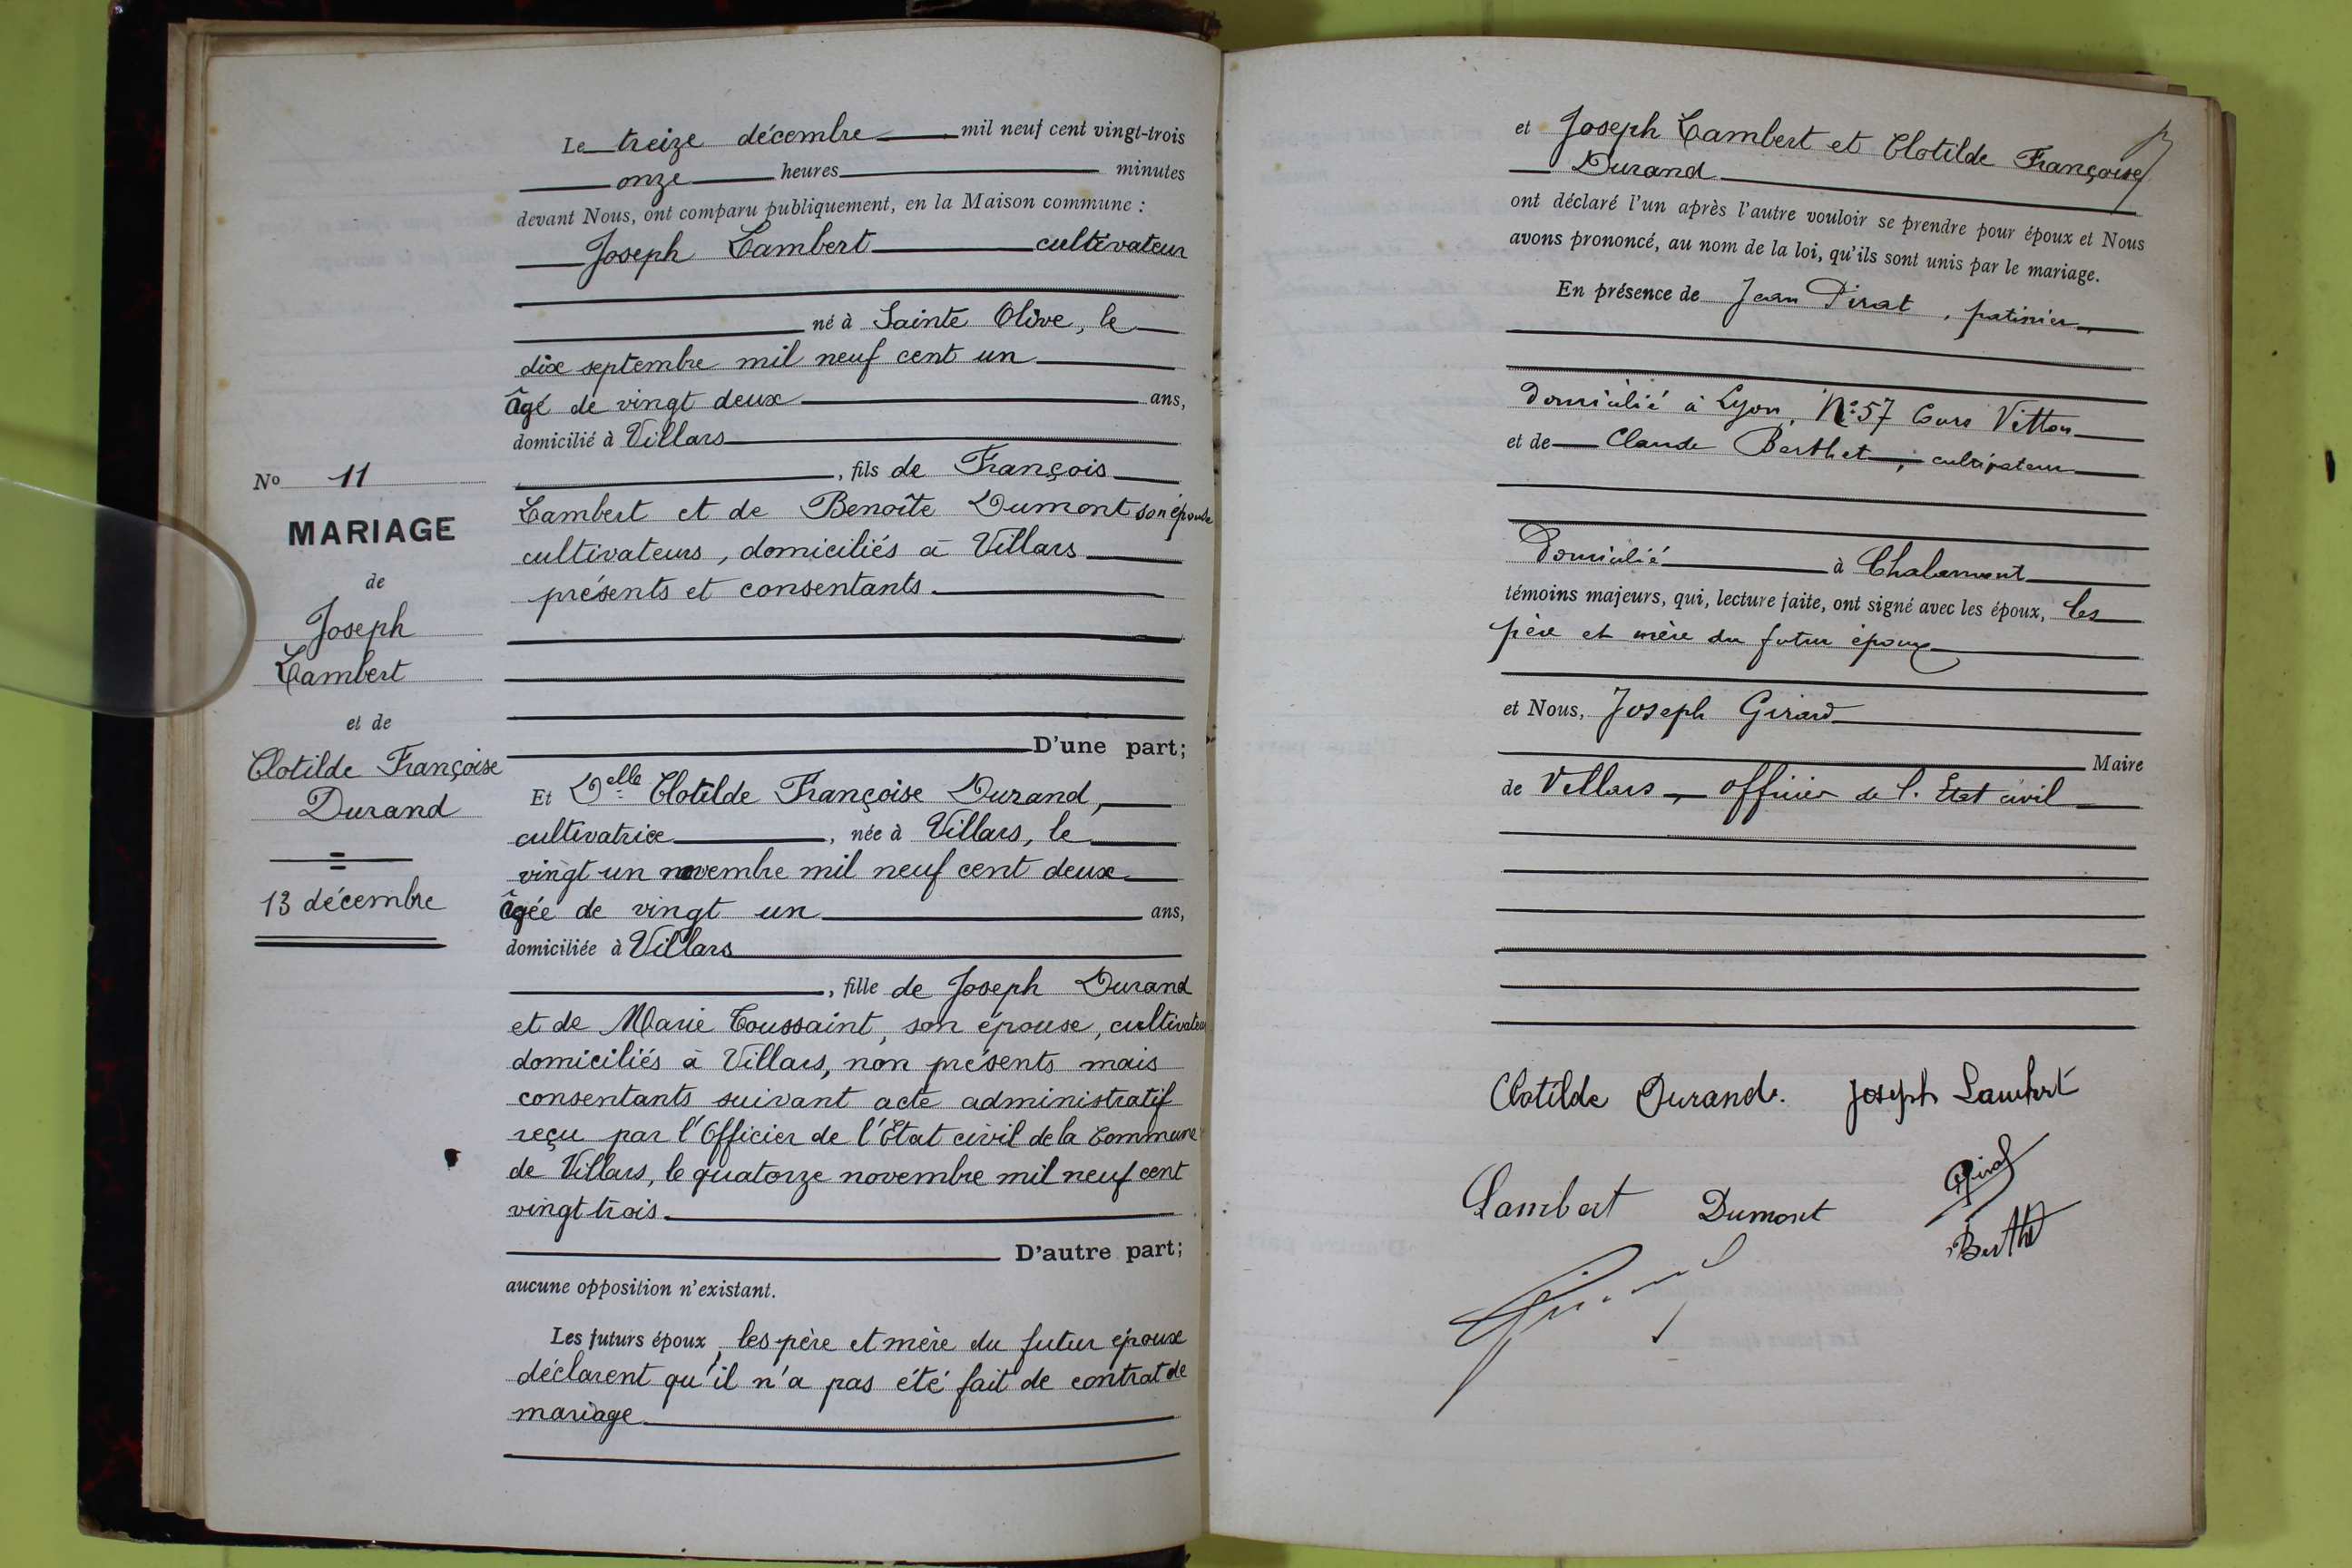 Le treize décembre mil neuf cent vingt-trois
onze heures minutes
devant Nous, ont comparu publiquement, en la Maison commune :
Joseph Lambert cultivateur
né à Sainte Olive, le
dix septembre mil neuf cent un
âgé de vingt deux ans,
domicilié à Villars
, fils de François
Lambert et de Benoîte Dumont son épouse
cultivateurs, domiciliés à Villars
présents et consentants.
D'une part;
Et Delle Clotilde Françoise Durand,
cultivatrice, née à Villars, le
vingt un novembre mil neuf cent deux
âgée de vingt un ans,
domiciliée à Villars
, fille de Joseph Durand
et de Marie Toussaint, son épouse, cultivateurs
domiciliés à Villars, non présents mais
consentants suivant acte administratif
reçu par l'Officier de l'Etat civil de la Commune
de Villars, le quatorze novembre mil neuf cent
vingt trois.
D'autre part;
aucune opposition n'existant.
Les futurs époux, les père et mère du futur époux
déclarent qu'il n'a pas été fait de contrat de
mariage
No 11
MARIAGE
de
Joseph
Lambert
et de
Clotilde Françoise
Durand
13 décembre
et Joseph Lambert et Clotilde Françoise
Durand
ont déclaré l'un après l'autre vouloir se prendre pour époux et Nous
avons prononcé, au nom de la loi, qu'ils sont unis par le mariage.
En présence de Jean Pirat, patinier,
Domicilié à Lyon, N° 57 Cours Vitton
et de Claude Berthet, cultivateur
Domicilié à Chalamont
témoins majeurs, qui, lecture faite, ont signé avec les époux, les
père et mère du futur époux
et Nous, Joseph Girard
Maire
de Villars, officier de l'Etat civil
Clotilde Durand. Joseph Lambert
Lambert Dumont Pirat
Berthet